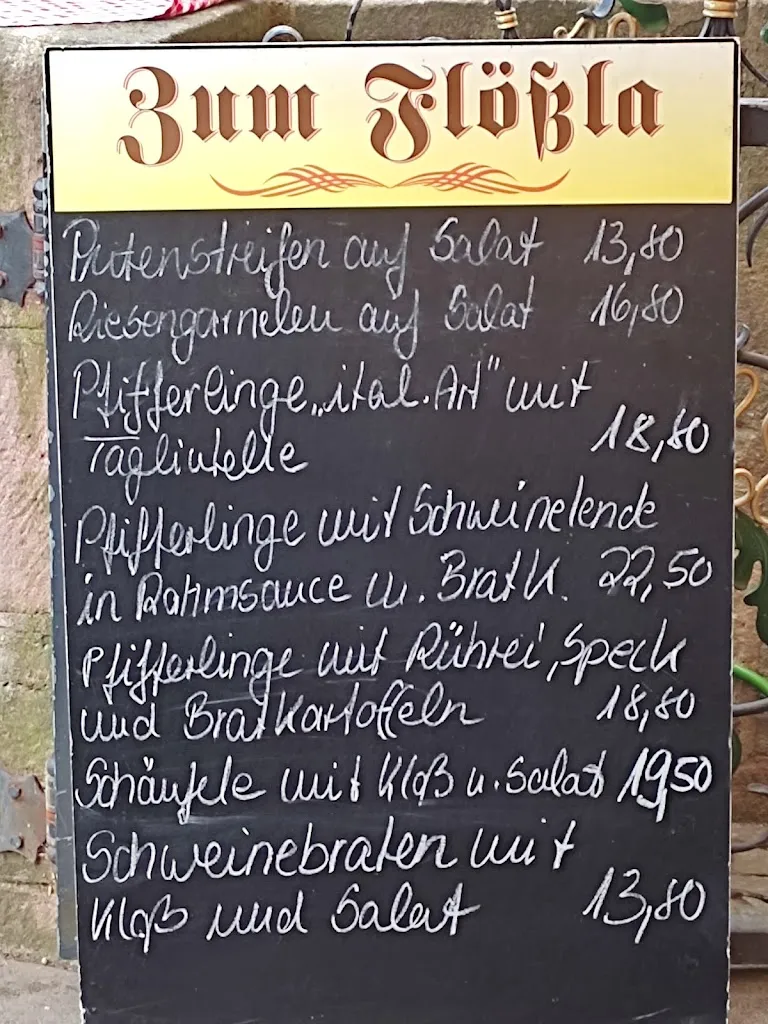 Zum Flößla
Putenstreifen auf Salat 13,80
Riesengarnelen auf Salat 16,80
Pfifferlinge „ital. Art" mit
Tagliatelle 18,80
Pfifferlinge mit Schweinelende
in Rahmsauce u. Bratk. 22,50
Pfifferlinge mit Rührei, Speck
und Bratkartoffeln 18,80
Schäufele mit Kloß u. Salat 19,50
Schweinebraten mit
Kloß und Salat 13,80